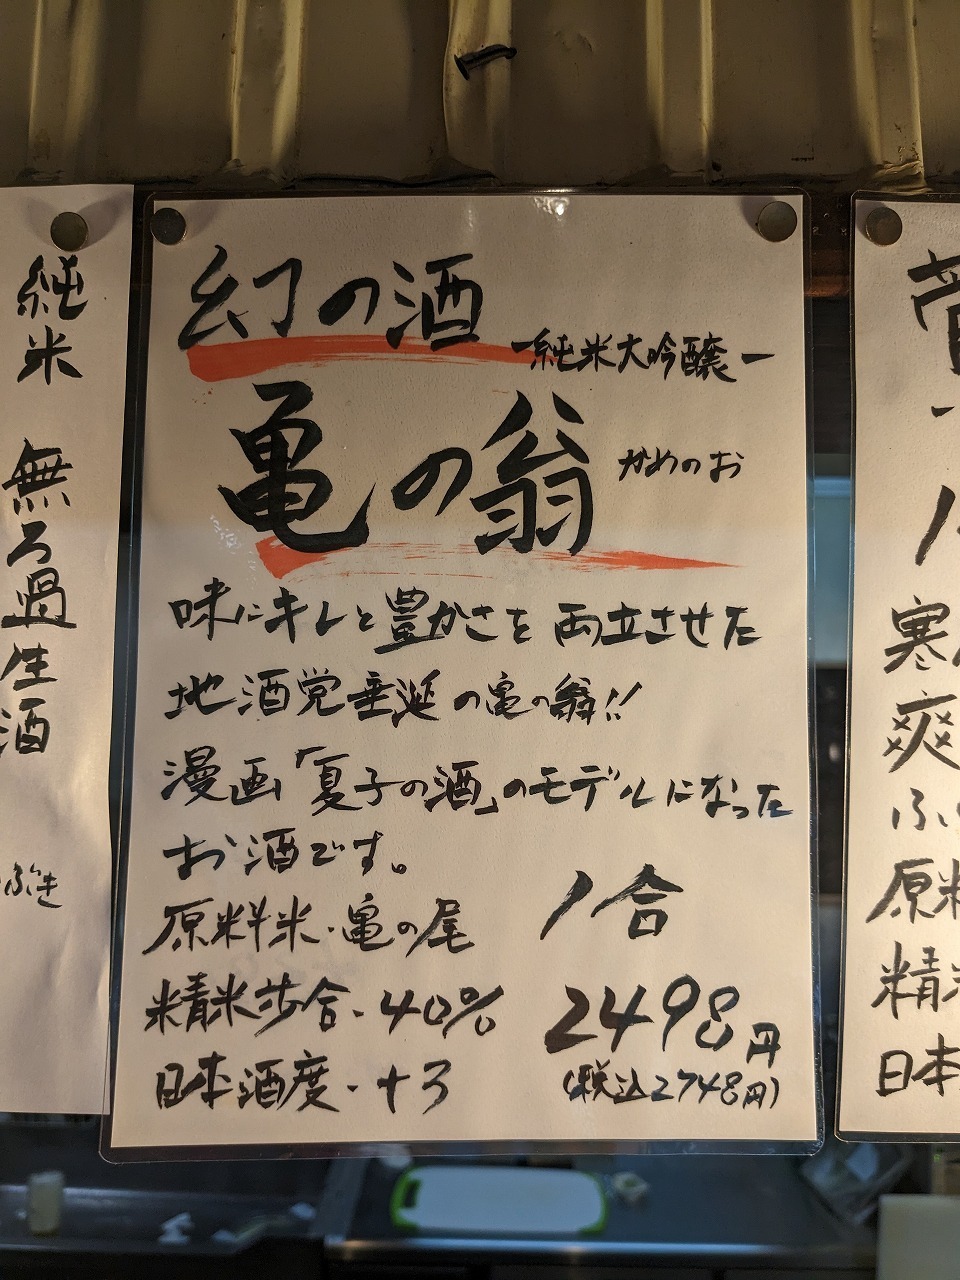 幻の酒
-純米大吟醸-
亀の翁 かめのお
味にキレと豊かさを両立させた
地酒党垂涎の亀の翁!!
漫画「夏子の酒」のモデルになった
お酒です。
原料米・亀の尾
精米歩合・40%
日本酒度・+3
1合
2498円
(税込2748円)
純米 無ろ過生酒
ぶき
寒
爽
ふ
原料
精米
日本